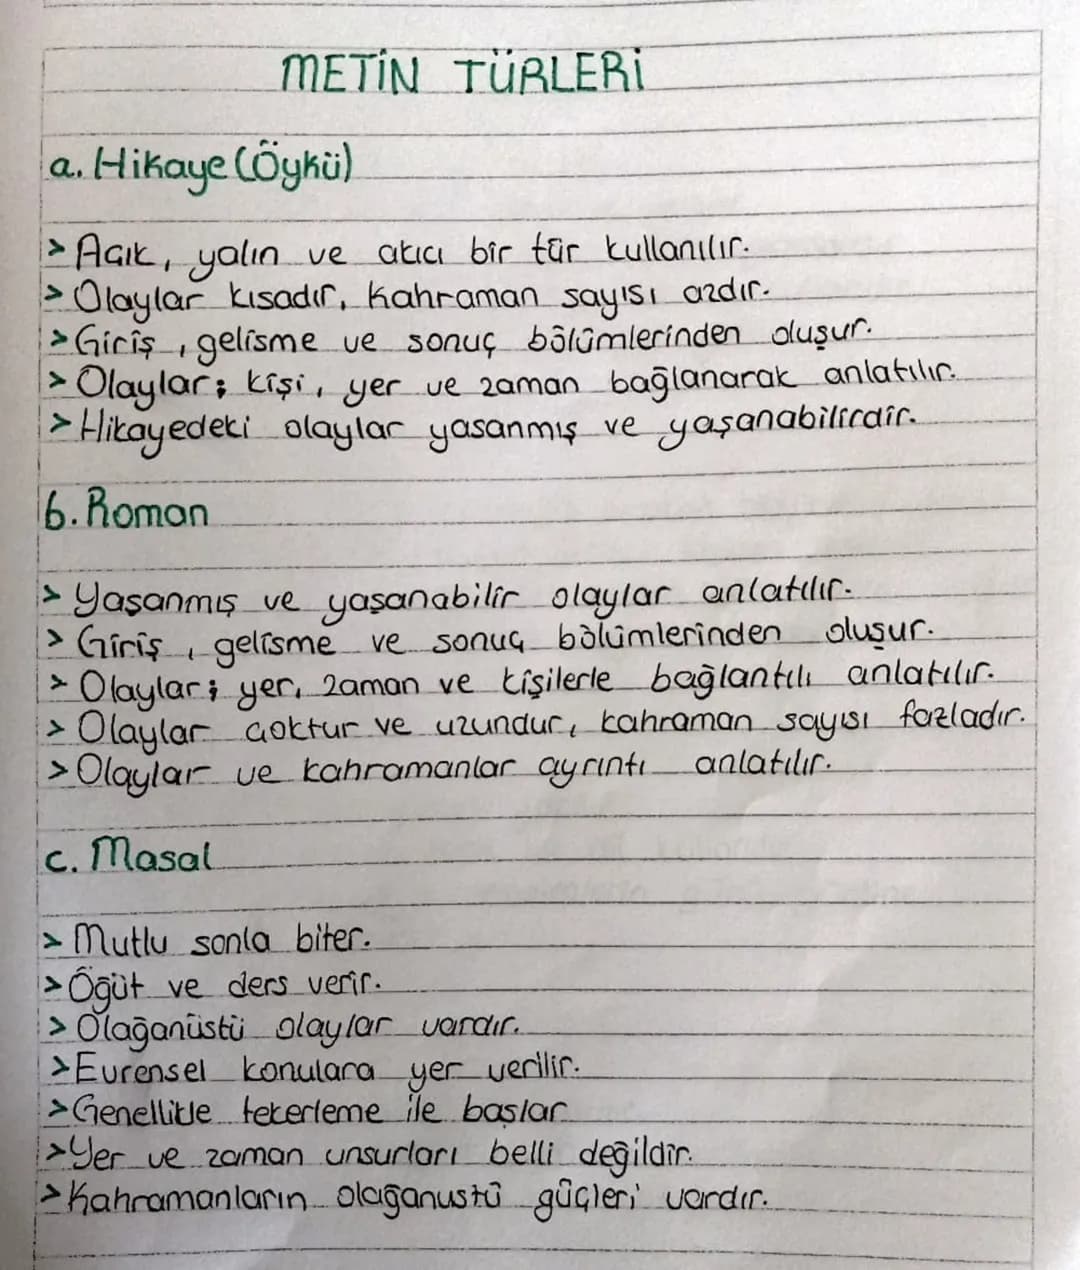 METİN TÜRLERİ
a. Hikaye (Öykü)
> Açık, yalın ve akıcı bir tür kullanılır.
> Olaylar kısadır, kahraman sayısı azdır.
> Giriş, gelisme ve sonuç bölümlerinden oluşur.
> Olaylar; kişi, yer ve zaman bağlanarak anlatılır.
> Hikayedeki olaylar yasanmış ve yaşanabilirdir.
b. Roman
> Yaşanmış ve yaşanabilir olaylar anlatılır.
> Giriş, gelisme ve sonuç bölümlerinden oluşur.
> Olaylar; yer, zaman ve kişilerle bağlantılı anlatılır.
> Olaylar çoktur ve uzundur, kahraman sayısı fazladır.
> Olaylar ve kahramanlar ayrıntı anlatılır.
c. Masal
> Mutlu sonla biter.
> Öğüt ve ders verir.
> Olağanüstü olaylar vardır.
> Evrensel konulara yer verilir.
> Genellikle tekerleme ile başlar
> Yer ve zaman unsurları belli değildir.
> Kahramanların olağanustü güçleri vardır.